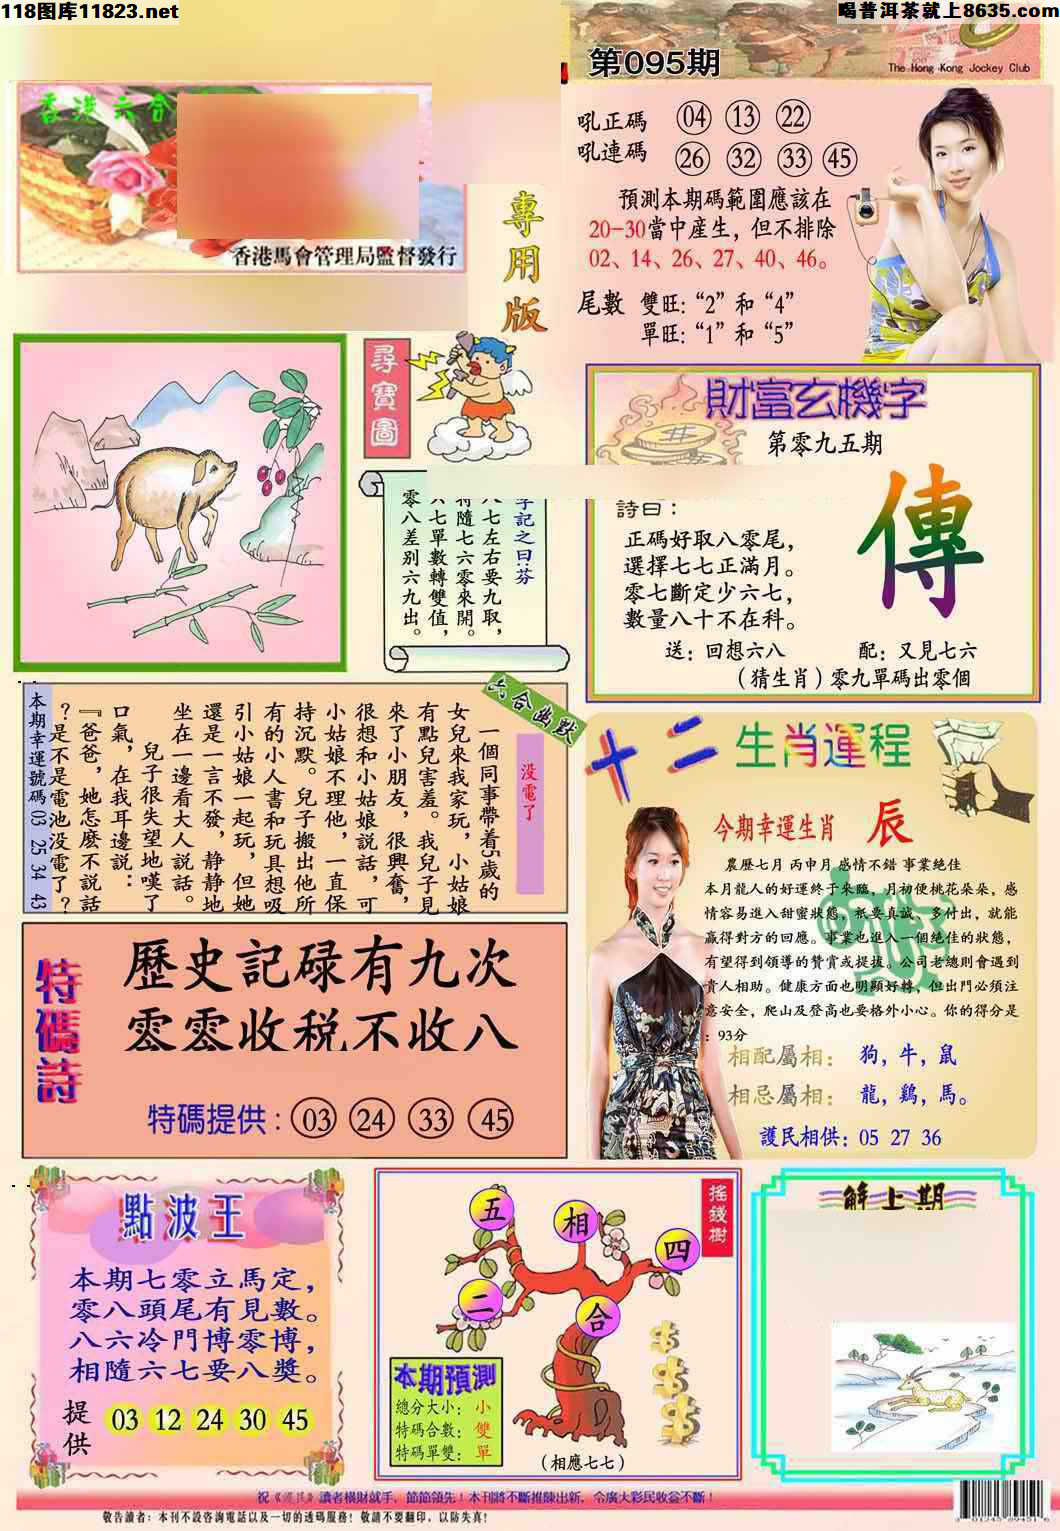 118图库11823.net
喝普洱茶就上8635.com
第095期
The Hong Kong Jockey Club
香港六合
香港馬會管理局監督發行
專用版
吼正碼 04 13 22
吼連碼 26 32 33 45
預測本期碼範圍應該在
20-30當中産生，但不排除
02、14、26、27、40、46。
尾數 雙旺：“2”和“4”
單旺：“1”和“5”
尋寶圖
字記之曰：芬
八七左右要九取，
特隨七六零來開。
六七單數轉雙值，
零八差别六九出。
財富玄機字
第零九五期
詩曰：
正碼好取八零尾，
選擇七七正滿月。
零七斷定少六七，
數量八十不在科。
傳
送：回想六八 配：又見七六
（猜生肖）零九單碼出零個
六合幽默
没電了
一個同事帶着5歲的
女兒來我家玩，小姑娘
有點兒害羞。我兒子見
來了小朋友，很興奮，
很想和小姑娘説話，可
小姑娘不理他，一直保
持沉默。兒子搬出他所
有的小人書和玩具想吸
引小姑娘一起玩，但她
還是一言不發，静静地
坐在一邊看大人説話。
兒子很失望地嘆了
口氣，在我耳邊説：
『爸爸，她怎麽不説話
？是不是電池没電了？
本期幸運號碼 03 25 34 43
十二生肖運程
今期幸運生肖 辰
農歷七月 丙申月 感情不錯 事業絶佳
本月龍人的好運終于來臨，月初便桃花朵朵，感
情容易進入甜蜜狀態，衹要真誠、多付出，就能
贏得對方的回應。事業也進入一個絶佳的狀態，
有望得到領導的贊賞或提拔。公司老總則會遇到
貴人相助。健康方面也明顯好轉，但出門必須注
意安全，爬山及登高也要格外小心。你的得分是
：93分
相配屬相： 狗，牛，鼠
相忌屬相： 龍，鷄，馬。
護民相供：05 27 36
特碼詩
歷史記碌有九次
零零收税不收八
特碼提供：03 24 33 45
點波王
本期七零立馬定，
零八頭尾有見數。
八六冷門博零博，
相隨六七要八獎。
提供 03 12 24 30 45
搖錢樹
五 相 四
二 合
本期預測
總分大小：小
特碼合數：雙
特碼單雙：單
（相應七七）
解上期
讀者横財就手，節節領先！本刊將不斷推陳出新，令廣大彩民收益不斷！
敬告讀者：本刊不設咨詢電話以及一切的透碼服務！敬請不要翻印，以防失真！